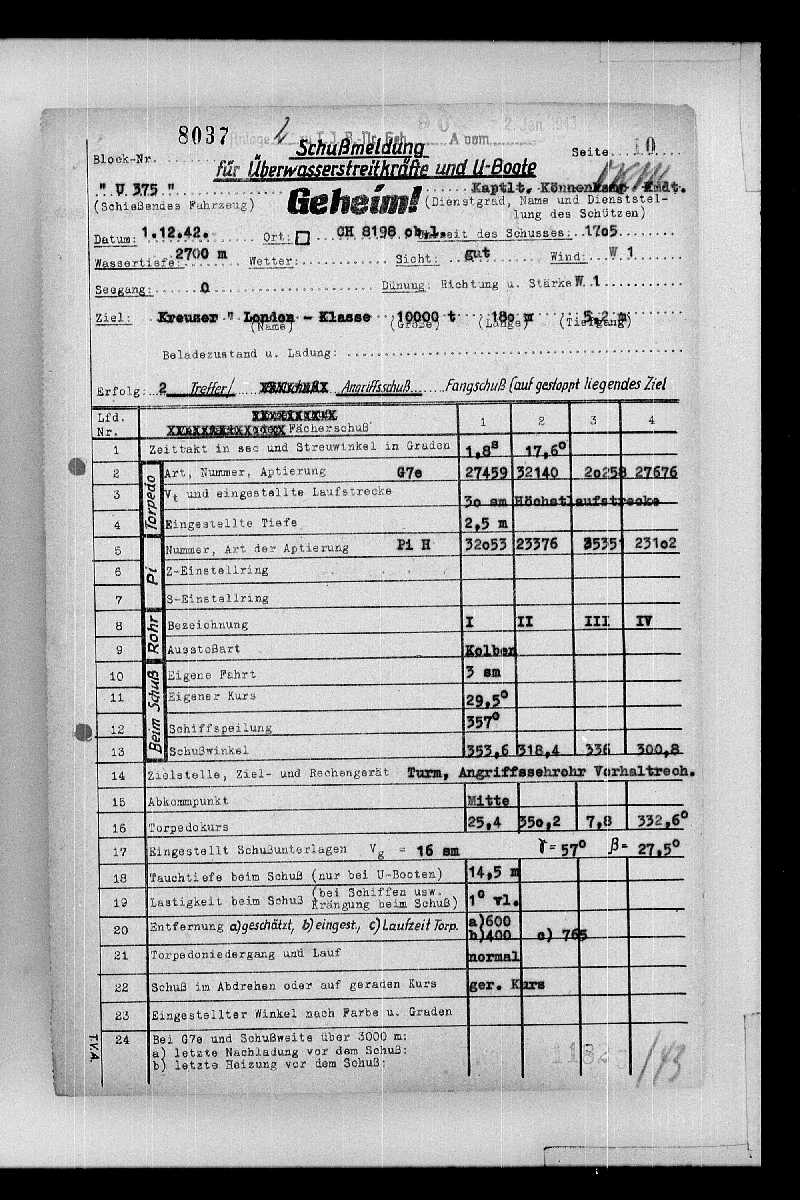 8037 Anlage 2 zu T.I.B.-Nr. Geh. A vom 2. Jan 1943
Block-Nr. Schußmeldung Seite 10
für Überwasserstreitkräfte und U-Boote
" U 375 " Kaptlt. Könnenkamp Kmdt.
(Schießendes Fahrzeug) Geheim! (Dienstgrad, Name und Dienststel-
lung des Schützen)
Datum: 1.12.42. Ort: CH 8198 ob.l. Uhrzeit des Schusses: 17o5
Wassertiefe: 2700 m Wetter: Sicht: gut Wind: W 1
Seegang: 0 Dünung: Richtung u. Stärke W 1
Ziel: Kreuzer " London - Klasse 10000 t 18o m 5,2 m
(Name) (Größe) (Länge) (Tiefgang)
Beladezustand u. Ladung:
Erfolg: 2 Treffer/ Angriffsschuß Fangschuß (auf gestoppt liegendes Ziel
Lfd. Nr. Fächerschuß 1 2 3 4
1 Zeittakt in sec und Streuwinkel in Graden 1,8s 17,6°
2 Art, Nummer, Aptierung G7e 27459 32140 2o258 27676
Torpedo
3 Vt und eingestellte Laufstrecke 3o sm Höchstlaufstrecke
4 Eingestellte Tiefe 2,5 m
5 Nummer, Art der Aptierung Pi H 32o53 23376 35351 231o2
Pi
6 Z-Einstellring
7 S-Einstellring
8 Bezeichnung I II III IV
Rohr
9 Ausstoßart Kolben
10 Eigene Fahrt 3 sm
Beim Schuß
11 Eigener Kurs 29,5°
12 Schiffspeilung 357°
13 Schußwinkel 353,6 318,4 336 300,8
14 Zielstelle, Ziel- und Rechengerät Turm, Angriffssehrohr Vorhaltrech.
15 Abkommpunkt Mitte
16 Torpedokurs 25,4 35o,2 7,8 332,6°
17 Eingestellt Schußunterlagen Vg = 16 sm γ = 57° β = 27,5°
18 Tauchtiefe beim Schuß (nur bei U-Booten) 14,5 m
19 Lastigkeit beim Schuß (bei Schiffen usw. Krängung beim Schuß) 1° vl.
20 Entfernung a)geschätzt, b)eingest., c)Laufzeit Torp. a)600
b)400 c) 765
21 Torpedoniedergang und Lauf normal
22 Schuß im Abdrehen oder auf geraden Kurs ger. Kurs
23 Eingestellter Winkel nach Farbe u. Graden
24 Bei G7e und Schußweite über 3000 m:
a) letzte Nachladung vor dem Schuß:
b) letzte Heizung vor dem Schuß:
T.V.A.
/43